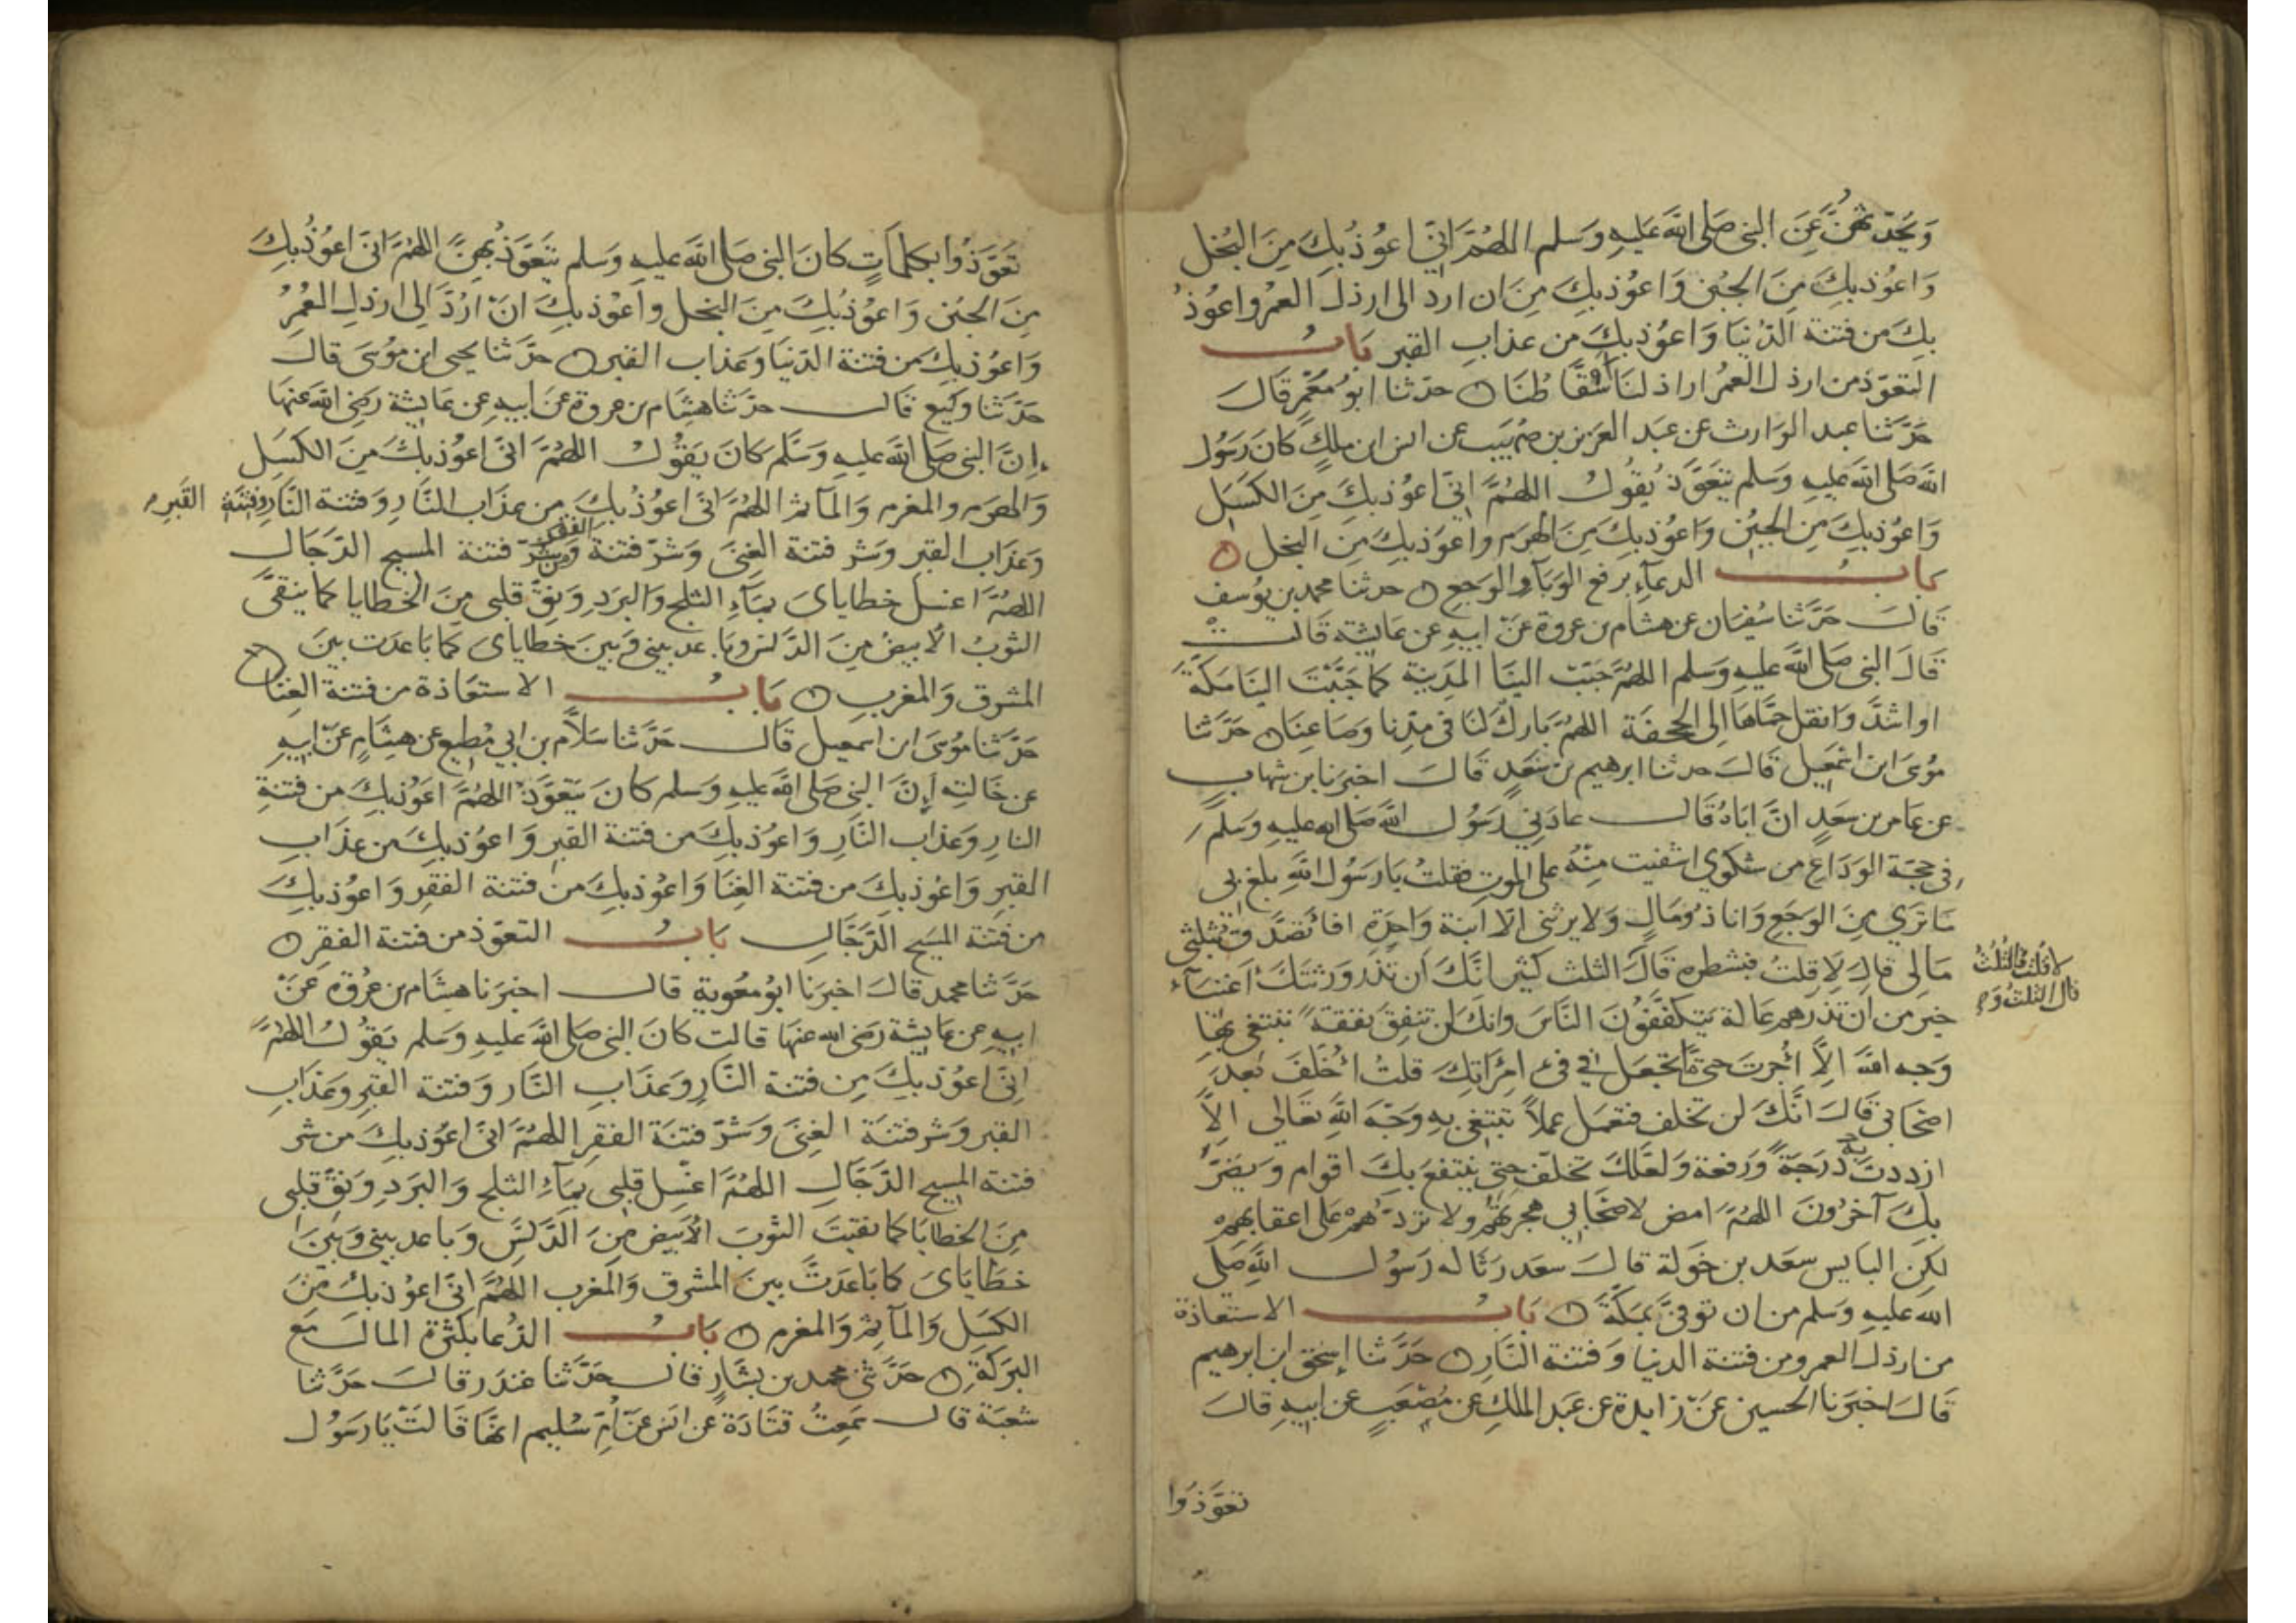 وَيُحَدِّثُهُنَّ عَنِ النبى صَلى اللهُ عَليهِ وَسَلم اللهُمَّ اِنّى اعُوْذُ بِكَ مِنَ البُخل
وَاعُوْذ بِكَ مِنَ الجُبْن وَاعُوْذ بِكَ مِنَ ان ارد الى ارذل العمُر واعُوذُ
بِكَ مِن فتنة الدّنيَا وَاعُوْذ بِكَ مِن عذابِ القبر بَابُ
التعَوّذ من ارذل العمُر اراذلنَا أسقَّاطُنَا حدّثنا ابو مَعْمَرٍ قَالَ
حَدَّثنا عبد الوَارث عن عَبد العَزيز بن صُهيَب عن انس ابن ملكٍ كانَ رَسُول
الله صَلى الله عَليهِ وَسَلم يَتَعَوَّذ يَقُولُ اللهُمَّ اِنّى اعُوْذ بكَ مِنَ الكَسَل
وَاعُوْذ بِكَ مِنَ الجُبْن وَاعُوْذ بِكَ مِنَ الهرَم واَعُوَذ بِكَ مِنَ البُخل
بابُ الدعآءِ برفع الوَبَآء والوَجَع حدثنا محمد بن يُوسف
قَالَ حَدَّثنا سُفيَان عن هشام بن عُروة عَن ابيهِ عن عَايشة قَالت
قَالَ النبى صَلى اللهُ عَليهِ وَسَلم اللهُمَّ حَبّبْ اليْنَا المدَينة كما حَبَّبْتَ اليْنَا مَكّةَ
او اشَدَّ وَانقل حُمَّاهَا اِلى الجحفَة اللهُمَّ بَارك لنَا فى مُدّنا وَصَاعِنَا حَدَّثنا
مُوسَى ابن اسْمَعِيل قَالَ حَدثنا ابرهيم بن سَعدٍ قَالَ اخبَرنا ابن شهابٍ
عن عَامر بن سَعدٍ انَّ ابَاهُ قَال عادَنِى رَسُول اللهِ صَلى الله عليهِ وَسَلَّمَ
فى حجّة الوَدَاع من شكوى اشفيت مِنْهُ على الموتِ فقلتُ يا رَسُول اللهِ بلغ بى
مَا ترَى مِنَ الوَجَع وَانا ذُو مَالٍ وَلا يرثنى الا ابنة وَاحِدَة افاتَصَدَّقُ بثلثى
مَالى قالَ لا قلتُ فبشطره قالَ الثلث كثير انَّكَ ان تذَر وَرَثتَكَ اَغنيَآءَ
لا قُلتُ فالثُّلثُ
قال الثلثُ وَ
خَيرٌ مِن اَن تذرَهُم عَالة يَتَكففُونَ النَّاسَ وانك لن تنفقَ نفقَةً تبتغى بِهَا
وَجه اللهِ الاَّ اُجرتَ حَتى مَا تجعَل فى فى امرَاتِكَ قلتُ اُخَلَّفُ بَعدَ
اصْحَابى قَالَ انَّكَ لن تخلف فتَعمَل عملاً تبتغى بِهِ وَجْهَ اللهِ تعَالى الاَّ
ازددتَ بهِ دَرَجَةً وَرفعة وَلعَلّكَ تخلّف حتى ينتفعَ بِكَ اقوام وَيضَرّ
بِكَ آخرُونَ اللهُمَّ امض لاصْحَابى هجرتَهُمْ ولا تردّهُمْ على اعقابهمْ
لكنِ البايس سعَد بن خَولة قالَ سعَد رَثَا له رَسُول اللهِ صَلى
الله عليهِ وَسَلم من ان توفىّ بمَكّةَ بَابُ الاستعاذة
من ارذل العمر ومن فتنة الدنيا وَفتنة النَّارِ حَدَّثنا اِسْحق ابن ابرهيم
قَالَ اخبَرنا الحسين عَنْ زايدة عن عَبد المَلكِ عن مُصْعَبٍ عن ابيهِ قالَ
تعَوّذوا
تعَوّذُوا بكلمَاتٍ كانَ النبى صَلى اللهُ عليهِ وَسَلم يَتَعَوّذ بِهِنَّ اللهُمَّ اِنّى اعُوْذُ بِكَ
مِنَ الجُبْن وَاعُوْذُ بِكَ مِنَ البخل واَعُوْذ بِكَ اَنْ ارُدَّ اِلى ارذلِ العُمُرِ
وَاعُوْذ بِكَ من فتنة الدّنيَا وَعَذاب القبر حَدَّثنا يحيى ابن موُسَى قالَ
حَدَّثنا وكيع قَالَ حَدَّثنا هشَام بن عروة عَن ابيهِ عن عَايشة رَضى الله عَنها
اِنَّ النبى صَلى اللهُ عليهِ وَسَلَّم كانَ يَقُولُ اللهُمَّ اِنّى اعُوْذ بكَ مِنَ الكَسَل
وَالهرَم والمغرم وَالمآثم اللهُمَّ انىّ اعُوذُ بكَ من عذَاب النَّارِ وَفتنة النَّارِ وفتنة القَبرِ
وَعَذَاب القبر وَشر فتنة الغِنَى وَشرّ فتنة الفقر وَمن شَرّ فتنة المسيح الدّجَال
اللهُمَّ اغسل خطاياىَ بمَآءِ الثلج وَالبَرَدِ وَنقِّ قلبى مِنَ الخطايا كما ينقىَّ
الثوبُ الاَبيضُ مِنَ الدَّنَس وبَاعد بينى وَبينَ خطاياى كما بَاعَدت بينَ
المشرق وَالمغرب بَابُ الاستعَاذة من فتنة الغِنَا
حَدَّثنا مُوسَى ابن اسمعيل قَالَ حَدَّثنا سَلاَّم بن ابى مُطيع عن هشَامٍ عَن ابيهِ
عن خَالتهِ اِنَّ النبى صَلى اللهُ عليهِ وَسَلم كانَ يَتعَوَّذ اللهُمَّ اعَوْذ بِكَ من فتنةِ
النارِ وَعذاب النَّارِ وَاعوُذ بكَ من فتنة القبرِ وَاعوُذ بكَ من عذَابِ
القبرِ وَاعُوْذ بكَ من فتنة الغِنَا وَاعُوْذ بكَ من فتنة الفقرِ وَاعوُذ بكَ
من فتنة المسَيح الدَّجَّال بَابُ التعَوّذ من فتنة الفقر
حَدَّثنا محمد قالَ اخبَرنا ابوُ معُوية قالَ اخبَرنا هشَام بن عروة عَنْ
ابيهِ عن عَايشة رَضى الله عنهَا قالت كانَ النبى صَلى اللهُ عليهِ وَسَلم يَقُولُ اللهُمَّ
اِنّى اعُوْذ بِكَ مِن فتنة النَّارِ وَعذَابِ النَّار وَفتنة القبرِ وَعَذَابِ
القبر وَشر فتنَة الغِنَى وَشرّ فتنَة الفقر اللهُمَّ انىّ اعُوْذ بكَ من شر
فتنة المسيح الدّجَّالِ اللهُمَّ اغسِل قلبى بمَآءِ الثلج وَالبَرَدِ وَنقِّ قلبى
مِنَ الخطايَا كما نقيتَ الثوبَ الاَبيض مِنَ الدَّنَسِ وَباعد بينى وَبَينَ
خطَايَاىَ كما بَاعَدتَّ بينَ المشرق وَالمغرب اللهُمَّ انىّ اعُوْذ بكَ مِنَ
الكسَل وَالمآثم وَالمغرم بَابُ الدّعا بكثرة المال مَع
البَركَةِ حَدَّثنى محمد بن بشَارٍ قالَ حَدَّثنا غندَر قالَ حَدَّثنا
شعبَة قالَ سَمِعتُ قتَادَة عن انسَ عَنْ اُمِّ سُليم انهَّا قَالتْ يَا رَسُول